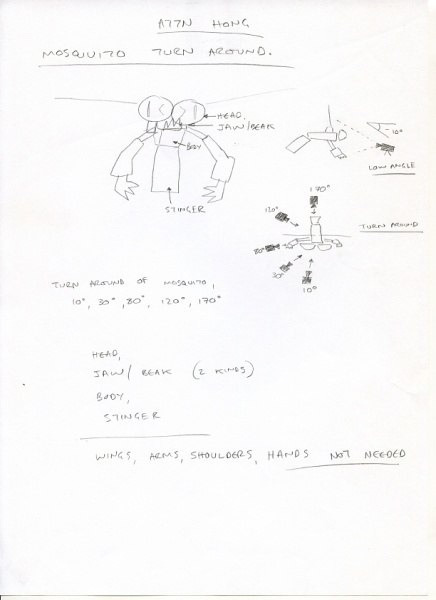 ATTN HONG
MOSQUITO TURN AROUND.
HEAD,
JAW/BEAK
BODY
STINGER
10°
LOW ANGLE
170°
120°
TURN AROUND
80°
30°
10°
TURN AROUND OF MOSQUITO,
10°, 30°, 80°, 120°, 170°
HEAD,
JAW/ BEAK (2 KINDS)
BODY,
STINGER
WINGS, ARMS, SHOULDERS, HANDS NOT NEEDED